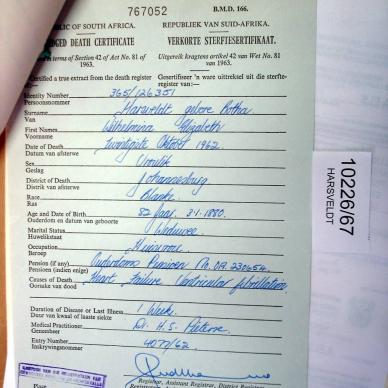 767052
B.M.D. 166.
REPUBLIC OF SOUTH AFRICA.
REPUBLIEK VAN SUID-AFRIKA.
DEATH CERTIFICATE
VERKORTE STERFTESERTIFIKAAT.
in terms of Section 42 of Act No. 81 of 1963.
Uitgereik kragtens artikel 42 van Wet No. 81 van 1963.
Certified a true extract from the death register
Gesertifiseer 'n ware uittreksel uit die sterfteregister:—
Identity Number 365/126351
Persoonsnommer
Surname Harsveldt gebore Botha
Van
First Names Wilhelmina Elizabeth
Voorname
Date of Death Twintigste Oktober 1962
Datum van afsterwe
Sex Vroulik
Geslag
District of Death Johannesburg
Distrik van afsterwe
Race Blanke
Ras
Age and Date of Birth 82 jaar 3.1.1880.
Ouderdom en datum van geboorte
Marital Status Weduwee
Huwelikstaat
Occupation Huisvrou
Beroep
Pension (if any) Ouderdoms Pensioen No. OR 230654
Pensioen (indien enige)
Causes of Death Heart Failure Ventricular fibrillation
Oorsake van dood
Duration of Disease or Last Illness 1 Week
Duur van kwaal of laaste siekte
Medical Practitioner Dr. H.S.
Geneesheer
Entry Number 4077/62
Inskrywingsnommer
Registrar, Assistant Registrar, District
10226/67
HARSVELDT